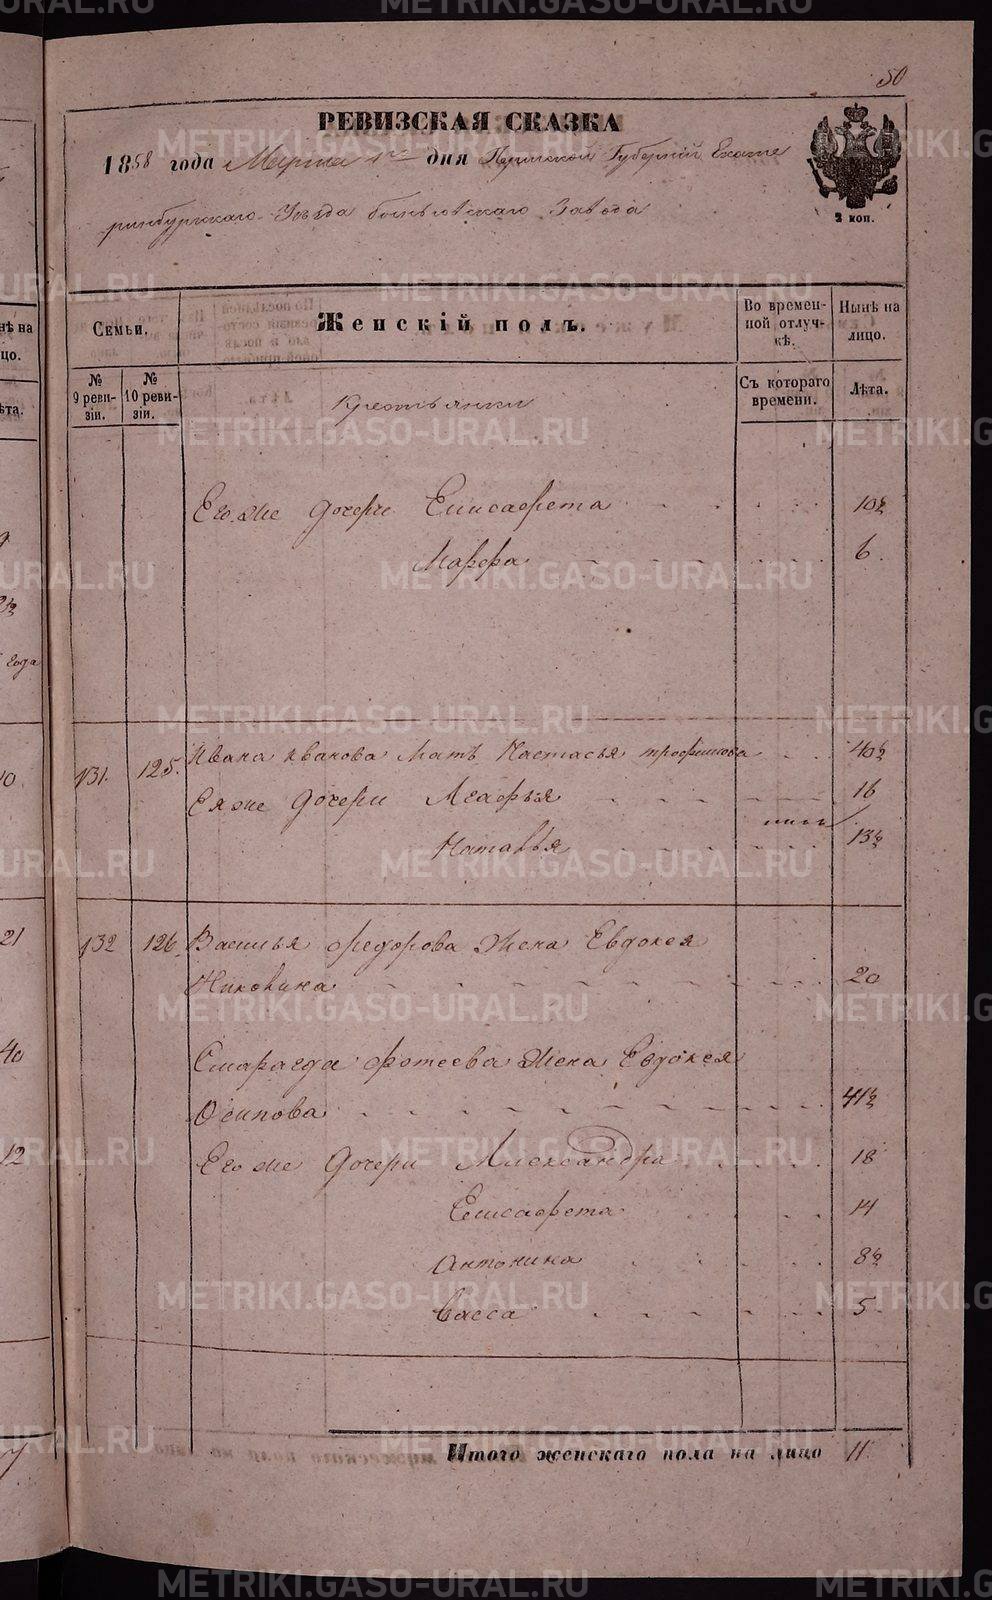 50
РЕВИЗСКАЯ СКАЗКА
1858 года Марта 1го дня Пермской Губернiи Екате
ринбургскаго Уѣзда завода
2 коп.
Семьи.
Женскій полъ.
Во времен-
ной отлуч-
кѣ.
Нынѣ на
лицо.
№
9 реви-
зіи.
№
10 реви-
зіи.
Съ котораго
времени.
Лѣта.
Крестьянки
Его же дочери Елисафета 10½
Марфа 6
131. 125. Ивана Иванова Мать Настасья трофимова 40½
Ея же дочери Агафья 16
Наталья 13½
132 126. Василья федорова Жена Евдокея
20
Смарагда фотеева Жена Евдокея
Осипова 41½
Его же дочери Александра 18
Елисафета 14
Антонина 8½
Васса 5
Итого женскаго пола на лицо 11
METRIKI.GASO-URAL.RU